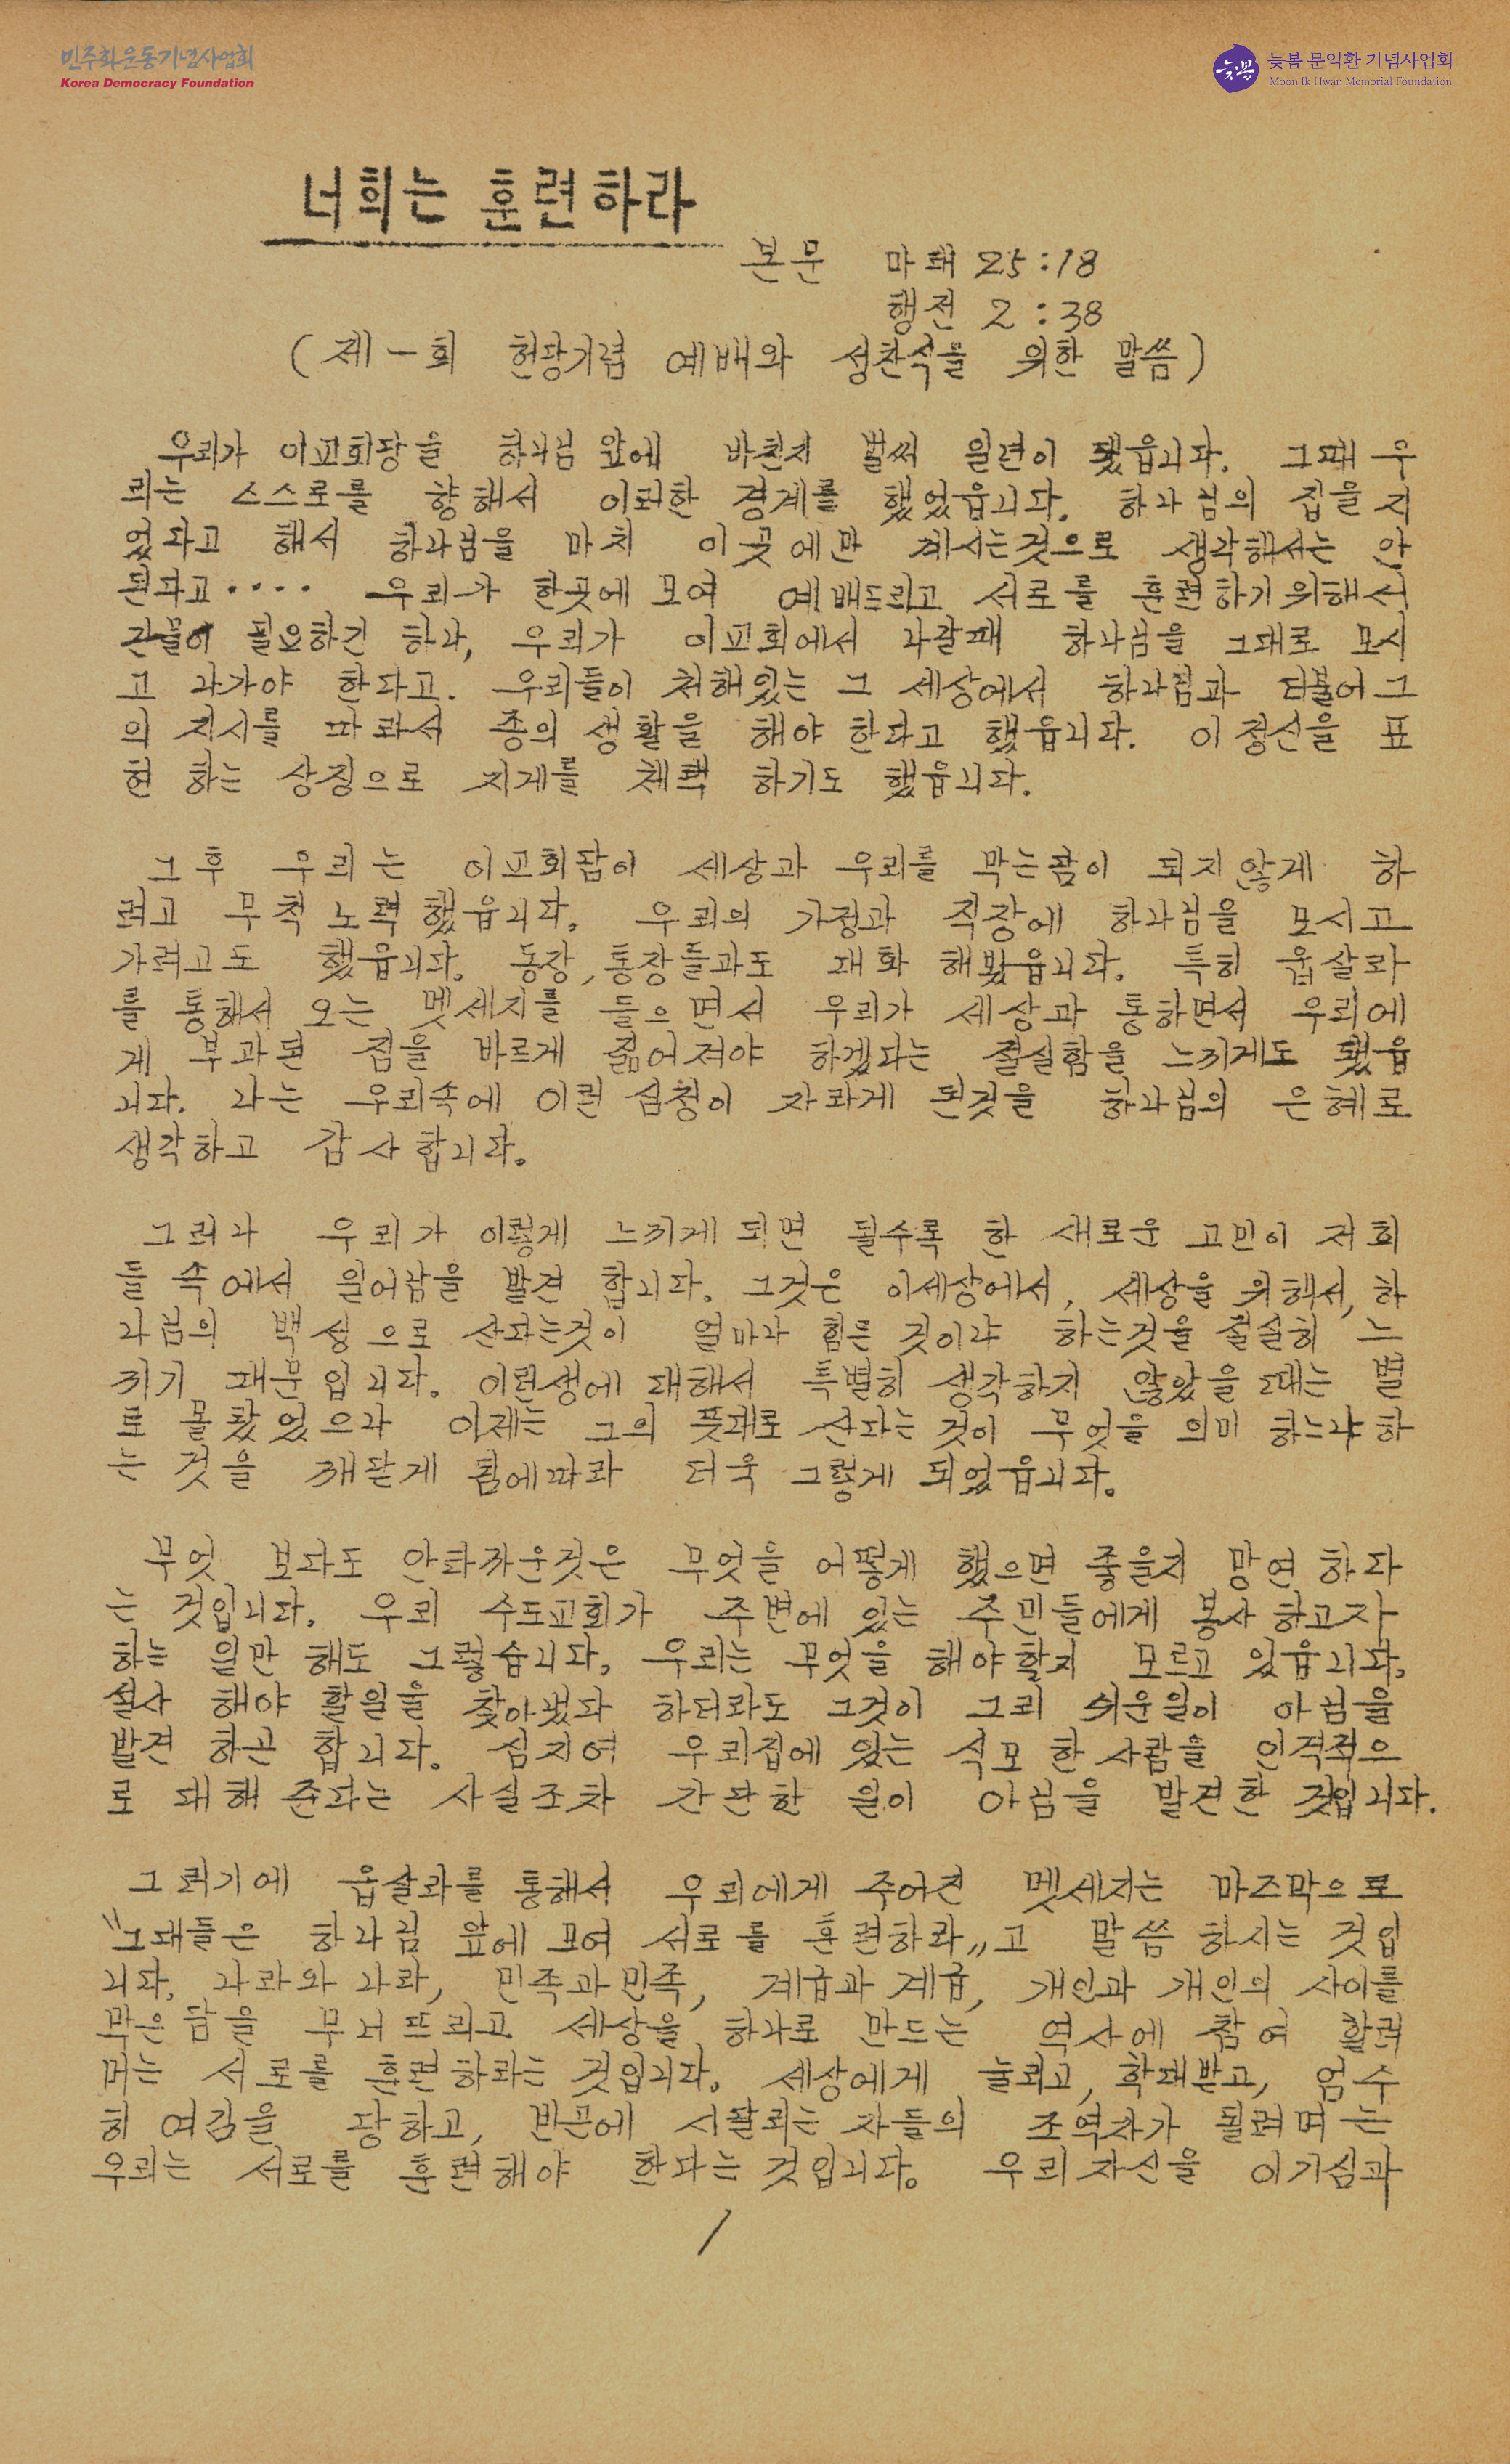 민주화운동기념사업회
Korea Democracy Foundation
늦봄
늦봄 문익환 기념사업회
Moon Ik Hwan Memorial Foundation
너희는 훈련하라
본문 마태 25:18
행전 2:38
(제一회 헌당기념 예배와 성찬식을 위한 말씀)
우리가 이교회당을 하나님 앞에 바친지 벌써 일년이 됐읍니다. 그때 우
리는 스스로를 향해서 이러한 경계를 했었읍니다. 하나님의 집을 지
었다고 해서 하나님을 마치 이곳에만 계시는것으로 생각해서는 안
된다고···· 우리가 한곳에 모여 예배드리고 서로를 훈련하기위해서
건물이 필요하긴 하나, 우리가 이교회에서 나갈때 하나님을 그대로 모시
고 나가야 한다고. 우리들이 처해있는 그 세상에서 하나님과 더불어 그
의 지시를 따라서 종의 생활을 해야 한다고 했읍니다. 이 정신을 표
현 하는 상징으로 지게를 채택 하기도 했읍니다.
그후 우리는 이교회담이 세상과 우리를 막는담이 되지않게 하
려고 무척 노력했읍니다. 우리의 가정과 직장에 하나님을 모시고
가려고도 했읍니다. 동장, 통장들과도 대화 해봤읍니다. 특히 웁살라
를 통해서 오는 멧세지를 들으면서 우리가 세상과 통하면서 우리에
게 부과된 짐을 바르게 짊어져야 하겠다는 절실함을 느끼게도 됐읍
니다. 나는 우리속에 이런 심정이 자라게 된것을 하나님의 은혜로
생각하고 감사합니다.
그러나 우리가 이렇게 느끼게 되면 될수록 한 새로운 고민이 저희
들 속에서 일어남을 발견 합니다. 그것은 이세상에서, 세상을 위해서, 하
나님의 백성으로 산다는것이 얼마나 힘든 것이냐 하는것을 절실히 느
끼기 때문입니다. 이런생에 대해서 특별히 생각하지 않았을때는 별
로 몰랐었으나 이제는 그의 뜻대로 산다는 것이 무엇을 의미 하느냐 하
는 것을 깨닫게 됨에따라 더욱 그렇게 되었읍니다.
무엇 보다도 안타까운것은 무엇을 어떻게 했으면 좋을지 망연 하다
는 것입니다. 우리 수도교회가 주변에 있는 주민들에게 봉사 하고자
하는 일만 해도 그렇습니다. 우리는 무엇을 해야할지 모르고 있읍니다.
설사 해야 할일을 찾아냈다 하더라도 그것이 그리 쉬운일이 아님을
발견 하곤 합니다. 심지어 우리집에 있는 식모 한 사람을 인격적으
로 대해 준다는 사실조차 간단한 일이 아님을 발견한 것입니다.
그러기에 웁살라를 통해서 우리에게 주어진 멧세지는 마즈막으로
"그대들은 하나님 앞에 모여 서로를 훈련하라„고 말씀 하시는 것입
니다. 나라와 나라, 민족과 민족, 계급과 계급, 개인과 개인의 사이를
막은 담을 무너뜨리고 세상을 하나로 만드는 역사에 참여 할려
며는 서로를 훈련하라는 것입니다. 세상에게 눌리고, 학대받고, 업수
히 여김을 당하고, 빈곤에 시달리는 자들의 조역자가 될려며는
우리는 서로를 훈련해야 한다는 것입니다. 우리자신을 이기심과
1